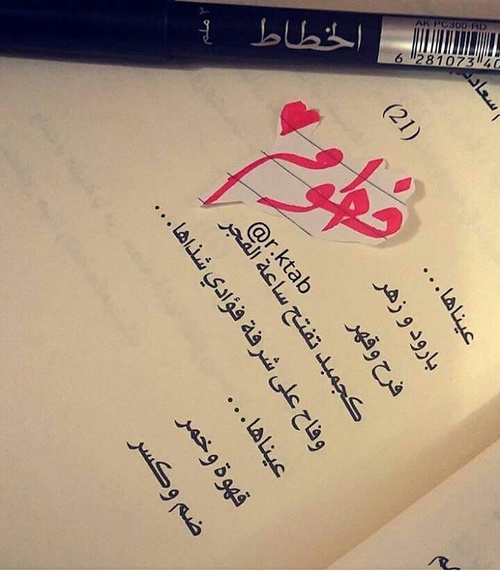 الخطاط
٢ ملم
AK-PC300-RD
6 281073 40
(21)
@r.ktab
عيناها...
بارود و زهر
فرح وقهر
كجميد تفتح ساعة الفجر
وفاح على شرفة فؤادي شذاها...
عيناها...
قهوة وخمر
ضم وكسر